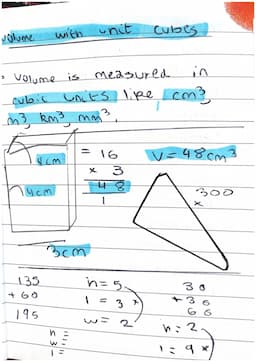 volume with unit cubes
• Volume is measured in
cubic units like cm³,
m³, km³, mm³.
4cm
4cm
3cm
= 16
x 3
48
1
V = 48cm³
300
x
135
+ 60
195
h = 5
l = 3 x
w = 2
h =
w =
l =
30
+ 36
66
h = 2
l = 9 x